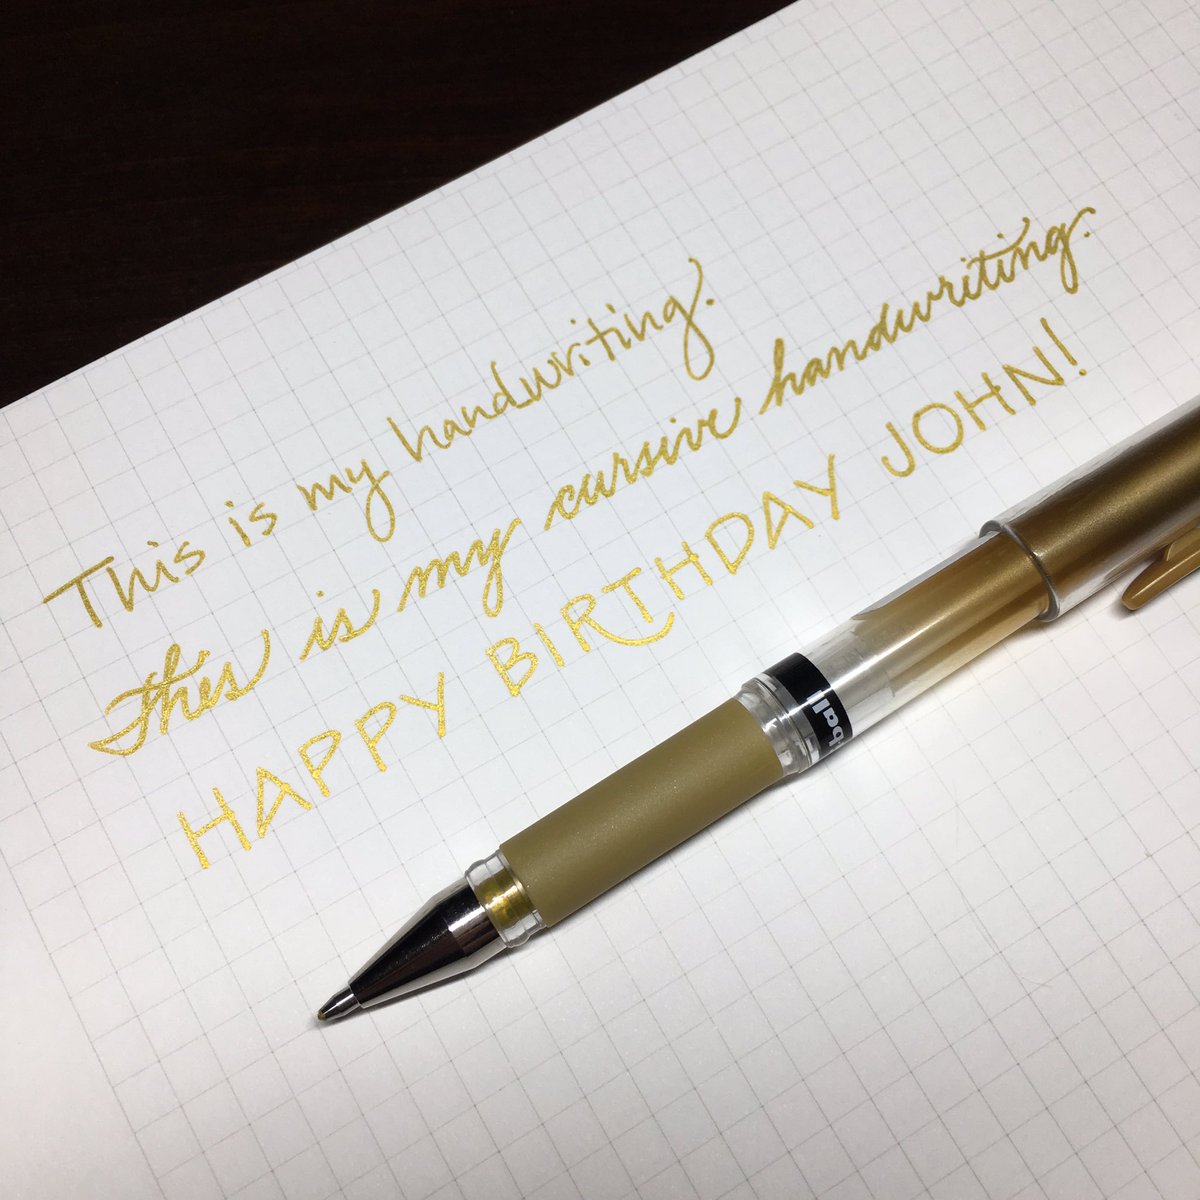 This is my handwriting.
This is my cursive handwriting.
HAPPY BIRTHDAY JOHN!
ball